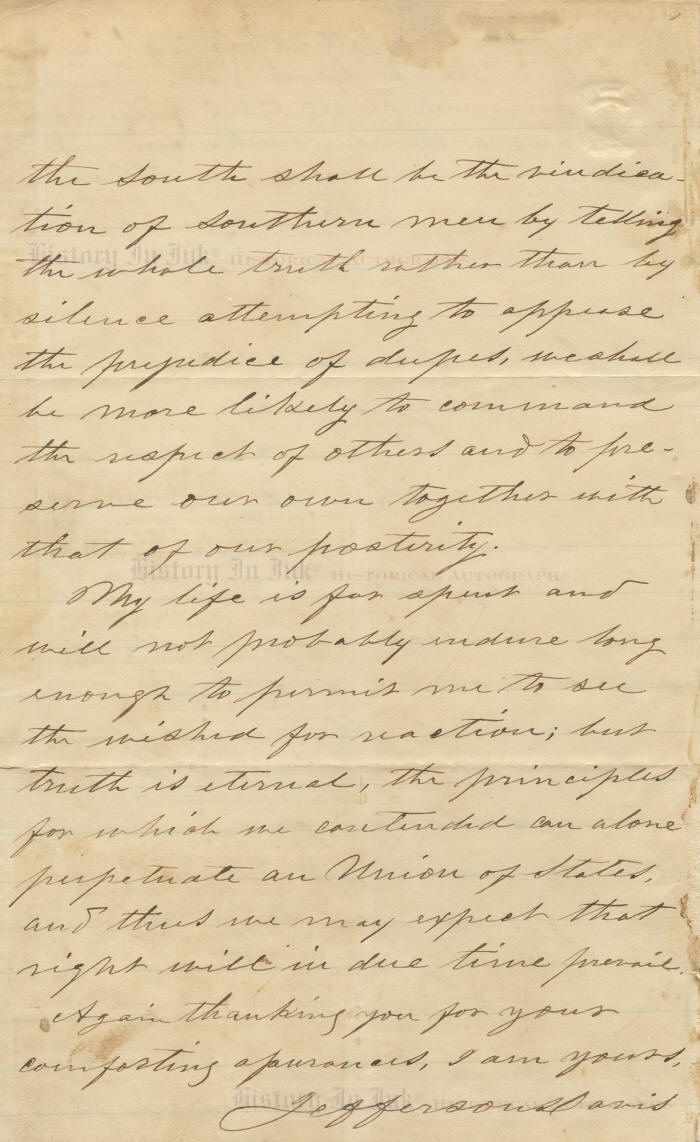 the South shall be the vindica-
tion of Southern men by telling
History In Ink® Historical Autographs
the whole truth rather than by
silence attempting to appease
the prejudice of dupes, we shall
be more likely to command
the respect of others and to pre-
serve our own together with
that of our posterity.
History In Ink® Historical Autographs
My life is far spent and
will not probably endure long
enough to permit me to see
the wished for reaction; but
truth is eternal, the principles
for which we contended can alone
perpetuate an Union of States,
and thus we may expect that
right will in due time prevail.
Again thanking you for your
comforting assurances, I am yours,
History In Ink® Historical Autographs
Jefferson Davis